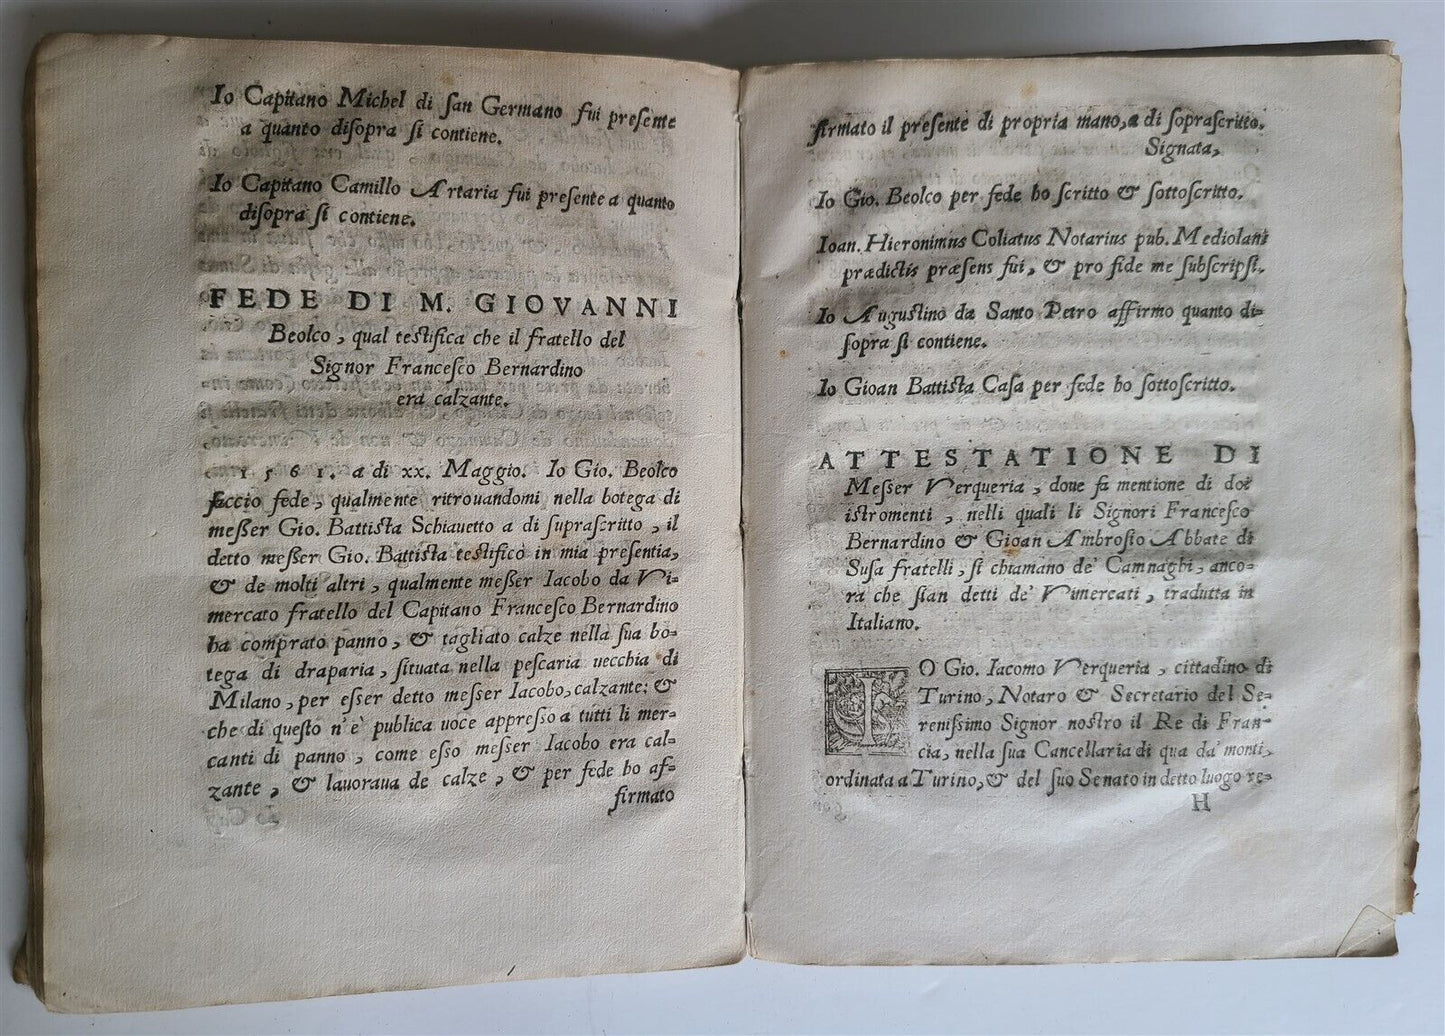 Io Capitano Michel di san Germano fui presente
a quanto disopra si contiene.
Io Capitano Camillo Artaria fui presente a quanto
disopra si contiene.
FEDE DI M. GIOVANNI
Beolco, qual testifica che il fratello del
Signor Francesco Bernardino
era calzante.
1561. a di xx. Maggio. Io Gio. Beolco
faccio fede, qualmente ritrouandomi nella botega di
messer Gio. Battista Schiauetto a di suprascritto, il
detto messer Gio. Battista testificò in mia presentia,
& de molti altri, qualmente messer Iacobo da Vi-
mercato fratello del Capitano Francesco Bernardino
ha comprato panno, & tagliato calze nella sua bo-
tega di draparia, situata nella pescaria uecchia di
Milano, per esser detto messer Iacobo, calzante: &
che di questo n'è publica uoce appresso a tutti li mer-
canti di panno, come esso messer Iacobo era cal-
zante, & lauoraua de calze, & per fede ho af-
firmato
firmato il presente di propria mano, a di soprascritto.
Signata,
Io Gio. Beolco per fede ho scritto & sottoscritto.
Ioan. Hieronimus Coliatus Notarius pub. Mediolani
prædictis præsens fui, & pro fide me subscripsi.
Io Augustino da Santo Petro affirmo quanto di-
sopra si contiene.
Io Gioan Battista Casa per fede ho sottoscritto.
ATTESTATIONE DI
Messer Verqueria, doue fa mentione di doi
istromenti, nelli quali li Signori Francesco
Bernardino & Gioan Ambrosio Abbate di
Susa fratelli, si chiamano de' Camnaghi, anco-
ra che sian detti de' Vimercati, tradutta in
Italiano.
IO Gio. Iacomo Verqueria, cittadino di
Turino, Notaro & Secretario del Se-
renissimo Signor nostro il Re di Fran-
cia, nella sua Cancellaria di qua da' monti,
ordinata a Turino, & del suo Senato in detto luogo re-
H